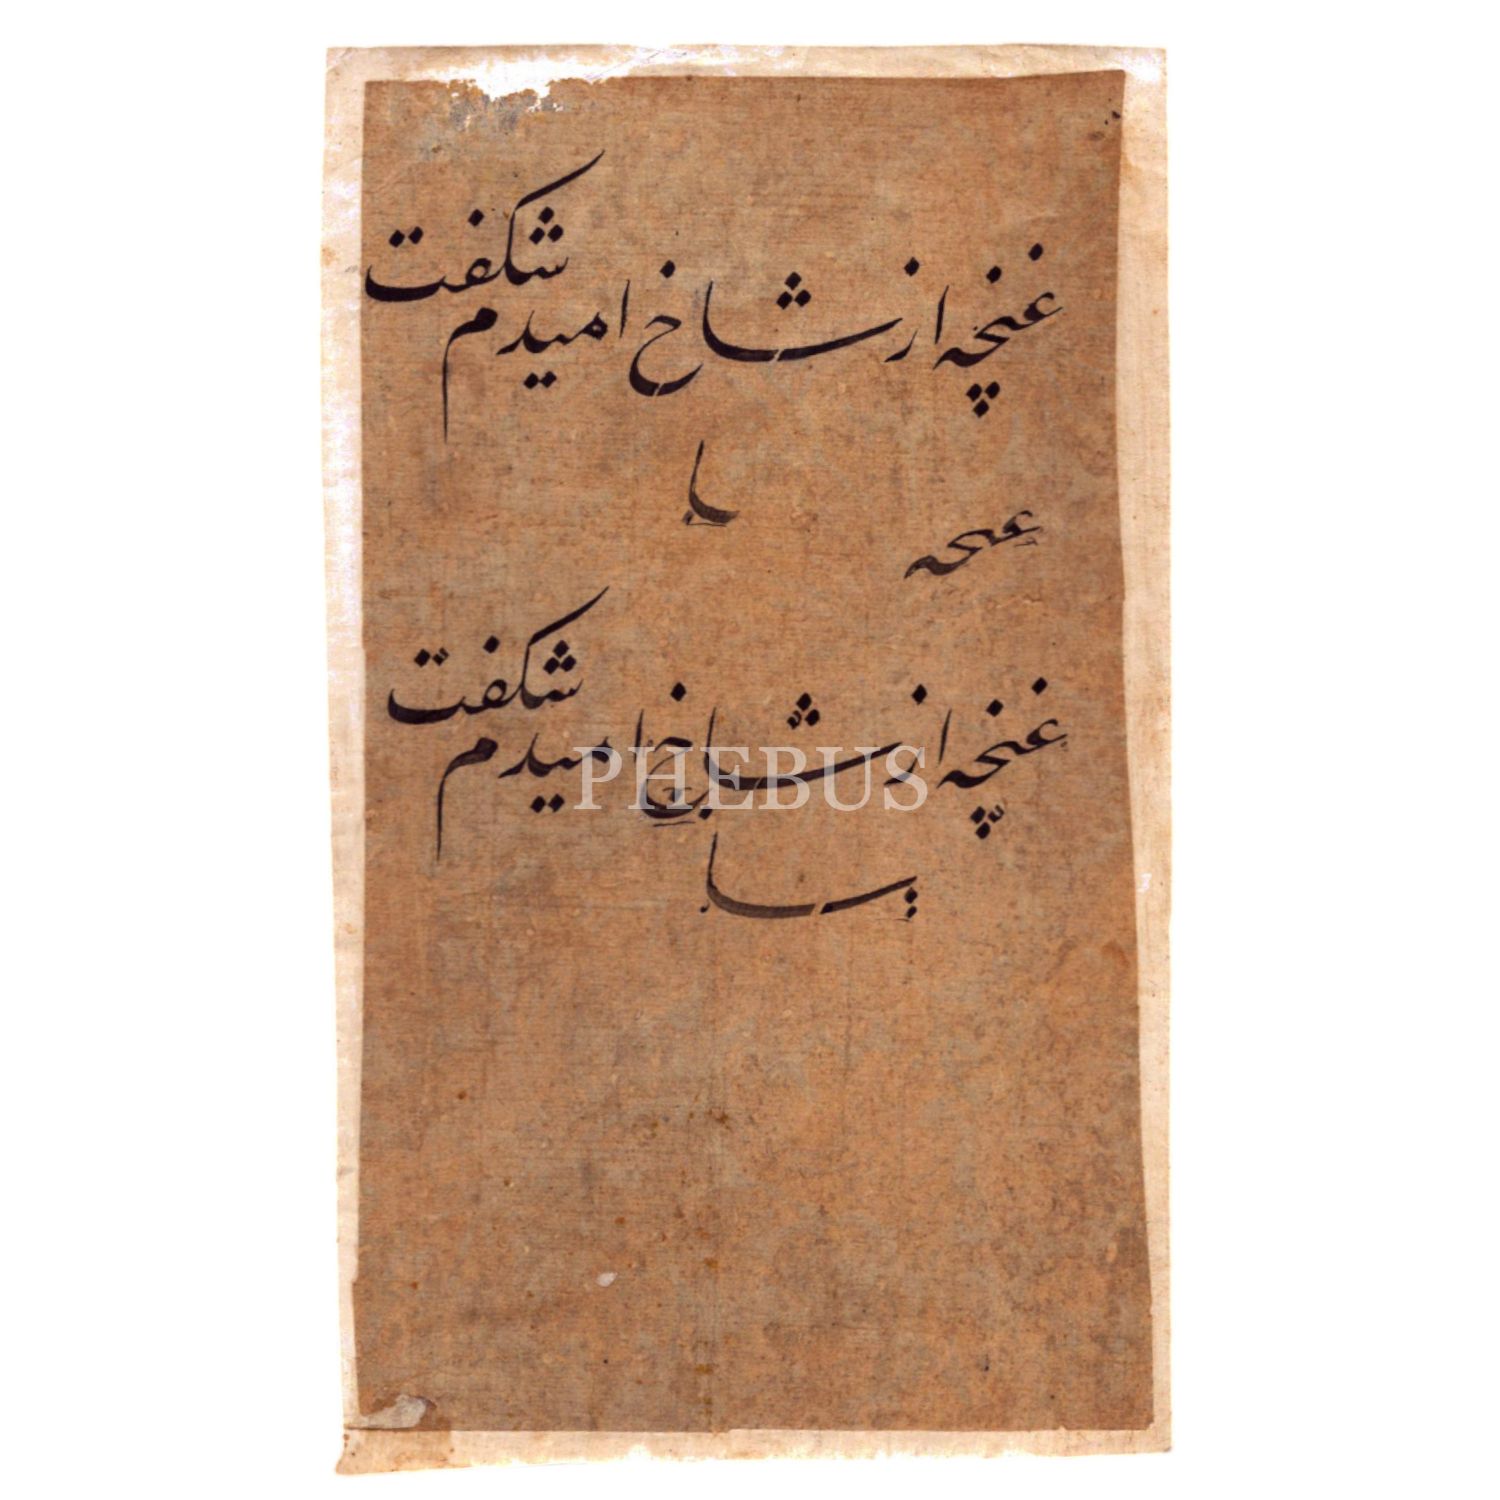 غنچه از شاخ امیدم شکفت
با
عنچه
غنچه از شاخ امیدم شکفت
PHEBUS